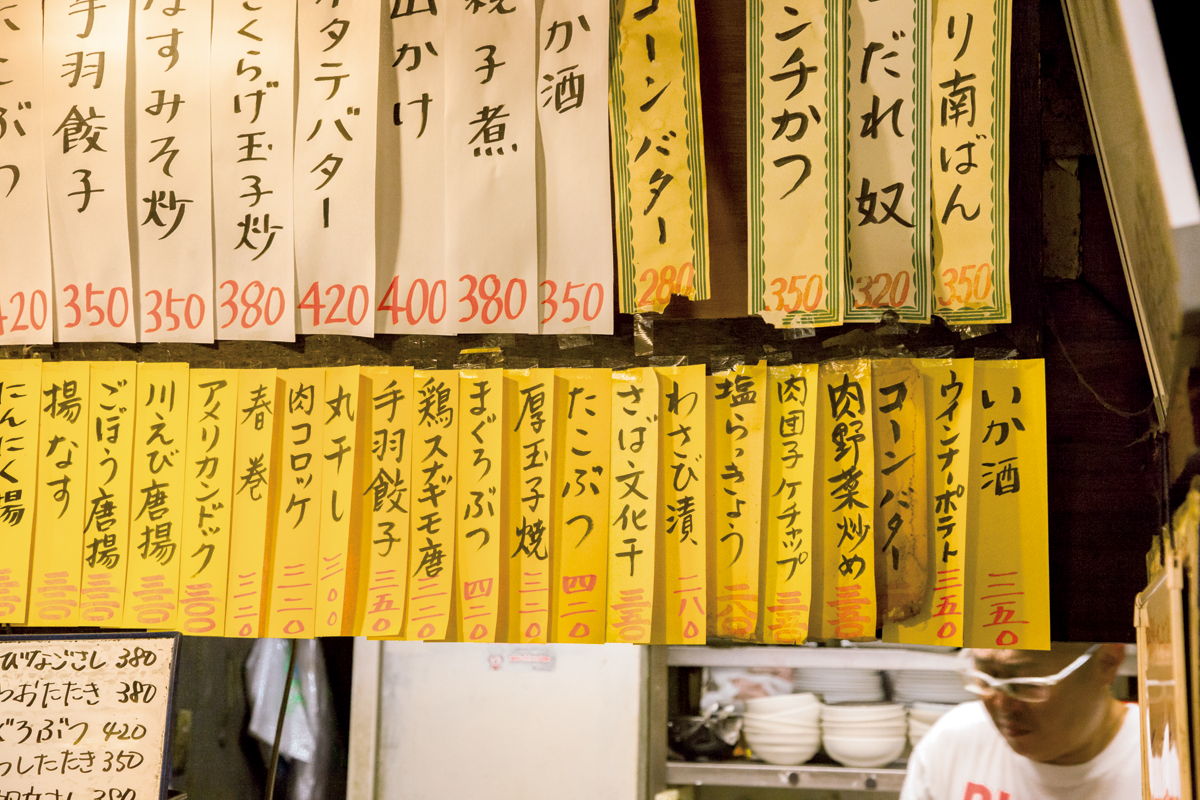 り南ばん 350
だれ奴 320
ンチかつ 350
コーンバター 280
か酒 350
子煮 380
山かけ 400
タテバター 420
くらげ玉子炒 380
なすみそ炒 350
手羽餃子 350
こぶつ 420
いか酒 三五〇
ウインナーポテト 三五〇
コーンバター
肉野菜炒め
肉団子ケチャップ
塩らっきょう
わさび漬 二八〇
さば文化干
たこぶつ 四二〇
厚玉子焼 三二〇
まぐろぶつ 四二〇
鶏スナギモ唐 三二〇
手羽餃子 三五〇
丸干し 三〇〇
肉コロッケ 三二〇
春巻 三二〇
アメリカンドック
川えび唐揚
ごぼう唐揚
揚なす
にんにく揚
さし 380
おたたき 380
ぐろぶつ 420
つしたたき 350
さし 380